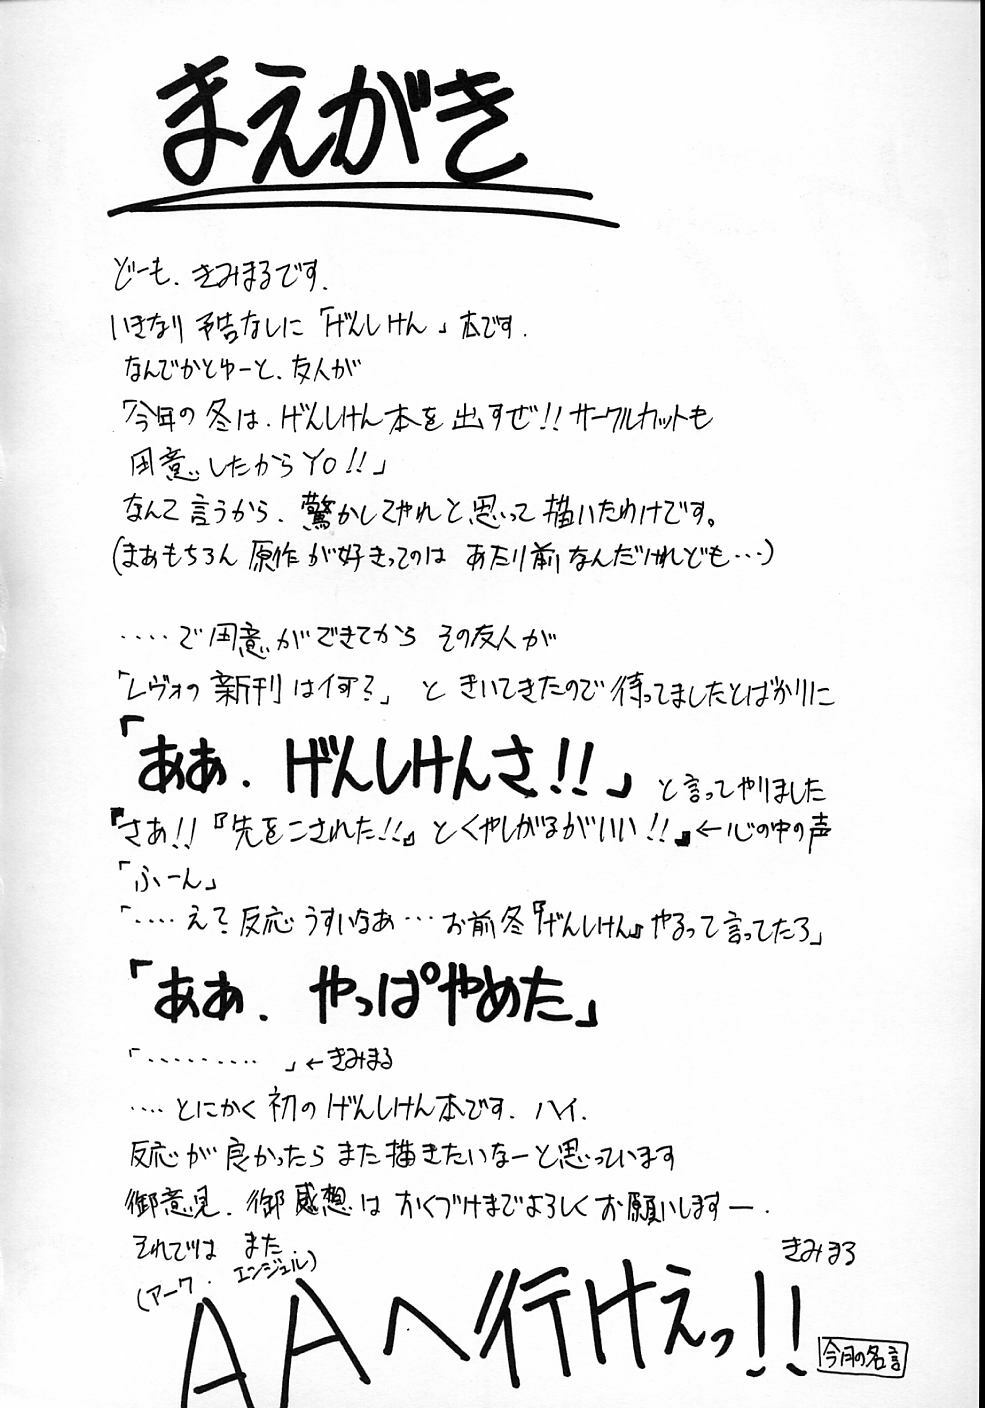 まえがき
どーも、きみまるです.
いきなり予告なしに「げんしけん」本です.
なんでかとゆーと、友人が
「今年の冬は、げんしけん本を出すぜ!!サークルカットも
用意したからYO!!」
なんて言うから、驚かしてやれと思って描いたわけです。
(まあもちろん原作が好きってのはあたり前なんだけれども…)
‥‥で用意ができてから その友人が
「レヴォの新刊は何?」ときいてきたので待ってましたとばかりに
「ああ、げんしけんさ!!」と言ってやりました
『さあ!!『先をこされた!!』とくやしがるがいい!!』←心の中の声
「ふーん」
「‥‥えて反応うすいなあ…お前冬『げんしけん』やるって言ってたろ」
「ああ、やっぱやめた」
「‥‥‥‥‥」←きみまる
‥‥とにかく初のげんしけん本です. ハイ.
反応が良かったらまた描きたいなーと思っています
御意見、御感想はおくづけまでよろしくお願いしますー.
それでは また.
きみまる
(アーク・エンジェル)
AAへ行けぇっ!!
今月の名言